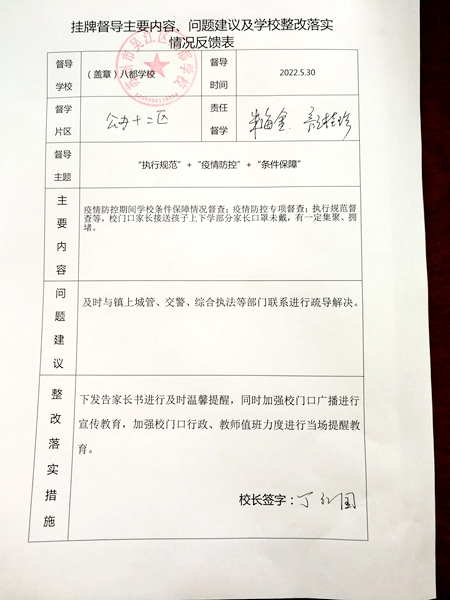 挂牌督导主要内容、问题建议及学校整改落实
情况反馈表
督导
学校
（盖章）八都学校
督导
时间
2022.5.30
督学
片区
公办十二区
责任
督学
督导
主题
“执行规范”+“疫情防控”+“条件保障”
主
要
内
容
疫情防控期间学校条件保障情况督查；疫情防控专项督查；执行规范督
查等，校门口家长接送孩子上下学部分家长口罩未戴，有一定集聚、拥
堵。
问
题
建
议
及时与镇上城管、交警、综合执法等部门联系进行疏导解决。
整
改
落
实
措
施
下发告家长书进行及时温馨提醒，同时加强校门口广播进行
宣传教育，加强校门口行政、教师值班力度进行当场提醒教
育。
校长签字：